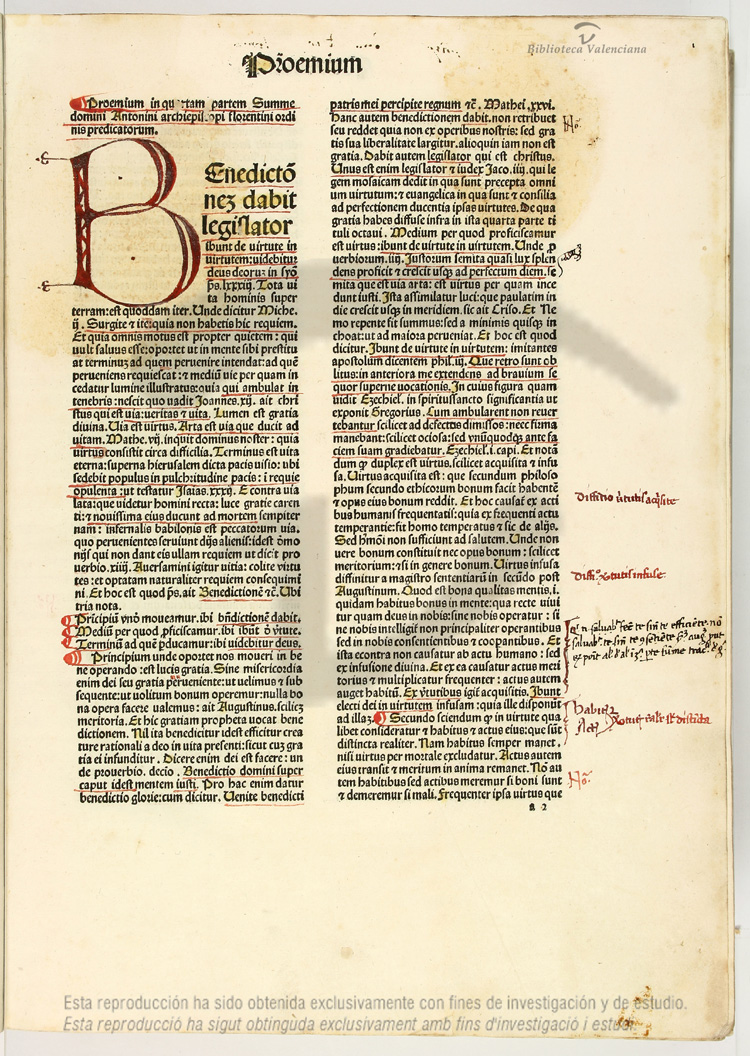 Biblioteca Valenciana
1
Prooemium
Prooemium in quartam partem Summe
domini Antonini archiepiscopi florentini ordi
nis predicatorum.
BEnedictõ
nez dabit
legislator
ibunt de uirtute in
uirtutem: uidebitur
deus deorum in syõ
ps. lxxxiij. Tota ui
ta hominis super
terram: est quoddam iter. Unde dicitur Miche.
ij. Surgite ⁊ ite: quia non habetis hic requiem.
Et quia omnis motus est propter quietem: qui
uult saluus esse: oportet ut in mente sibi prestitu
at terminum ad quem peruenire intendat: ad quem
perueniens requiescat: ⁊ mediũ uie per quam in
cedatur lumine illustratus: quia qui ambulat in
tenebris: nescit quo uadit Joannes. xij. ait chri
stus qui est uia: ueritas ⁊ uita. Lumen est gratia
diuina. Uia est uirtus. Arta est uia que ducit ad
uitam. Mathe. vij. inquit dominus noster: quia
uirtus consistit circa difficilia. Terminus est uita
eterna: superna hierusalem dicta pacis uisio: ubi
sedebit populus in pulchritudine pacis: ⁊ requie
opulenta: ut testatur Isaias. xxxij. E contra uia
lata: que uidetur homini recta: luce gratie caren
ti: ⁊ nouissima eius ducunt ad mortem sempiter
nam: infernalis babilonis est peccatorum uia.
quo peruenientes seruiunt dijs alienis: idest dõmo
nijs qui non dant eis ullam requiem ut dicit pro
uerbio. xiiij. Auersamini igitur uitia: colite virtu
tes: et optatam naturaliter requiem consequimi
ni. Et hoc est quod ps. ait Benedictionẽ ⁊c. Ubi
tria nota.
Pricipiũ vnõ mouemur. ibi bñdictionẽ dabit.
Mediũ per quod proficiscamur. ibi ibunt õ vtute.
Terminũ ad quẽ producamur: ibi uidebitur deus.
Principium unde oportet nos moueri in be
ne operando: est lucis gratia. Sine misericordia
enim dei seu gratia preueniente: ut uelimus ⁊ sub
sequente: ut uolitum bonum operemur: nulla bo
na opera facere ualemus: ait Augustinus. scilicz
meritoria. Et hic gratiam propheta uocat bene
dictionem. Nil ita benedicitur idest efficitur crea
ture rationali a deo in uita presenti: sicut cuz gra
tia ei infunditur. Dicere enim dei est facere: un
de prouerbio. decio. Benedictio domini super
caput idest mentem iusti. Pro hac enim datur
benedictio glorie: cum dicitur. Uenite benedicti
patris mei percipite regnum ⁊c. Mathei. xxvi.
Hanc autem benedictionem dabit. non retribuet
seu reddet quia non ex operibus nostris: sed gra
tis sua liberalitate largitur. alioquin iam non est
gratia. Dabit autem legislator qui est christus.
Unus est enim legislator ⁊ iudex Jaco. iiij. qui le
gem mosaicam dedit in qua sunt precepta omni
um uirtutum: ⁊ euangelica in qua sunt ⁊ consilia
ad perfectionem ducentia ipsas uirtutes. De qua
gratia habes diffuse infra in ista quarta parte ti
tuli octaui. Medium per quod proficiscamur
est uirtus: ibunt de uirtute in uirtutem. Unde pro
uerbiorum. iiij. Justorum semita quasi lux splen
dens proficit ⁊ crescit usqz ad perfectum diem. se
mita que est uia arta: est uirtus per quam ince
dunt iusti. Ista assimilatur luci: que paulatim in
die crescit usqz in meridiem. sic ait Criso. Et Ne
mo repente fit summus: sed a minimis quisqz in
choat: ut ad maiora perueniat. Et hoc est quod
dicitur. Ibunt de uirtute in uirtutem: imitantes
apostolum dicentem phil. iij. Que retro sunt ob
litus: in anteriora me extendens ad brauium se
quor superne uocationis. In cuius figura quam
uidit Ezechiel. in spiritussancto significantia ut
exponit Gregorius. Cum ambularent non reuer
tebantur scilicet ad defectus dimissos: nec firma
manebant: scilicet ociosa: sed vnũquodqz ante fa
ciem suam gradiebatur. Ezechiel. i. capi. Et notã
dum qz duplex est uirtus. scilicet acquisita ⁊ infu
sa. Uirtus acquisita est: que secundum philoso
phum secundo ethicorum bonum facit habentẽ
⁊ opus eius bonum reddit. Et hoc causat ex acti
bus humanis frequentatis: quia ex frequenti actu
temperantie: fit homo temperatus ⁊ sic de alijs.
Sed hmõi non sufficiunt ad salutem. Unde non
uere bonum constituit nec opus bonum: scilicet
meritorium: ⁊ si in genere bonum. Uirtus infusa
diffinitur a magistro sententiarũ in secũdo post
Augustinum. Quod est bona qualitas mentis. i.
quidam habitus bonus in mente: qua recte uiui
tur quam deus in nobis: sine nobis operatur: si
ne nobis intelligi non principaliter operantibus
sed in nobis consentientibus ⁊ coopantibus. Et
ista econtra non causatur ab actu humano: sed
ex infusione diuina. Et ex ea causatur actus meri
torius ⁊ multiplicatur frequenter: actus autem
auget habitũ. Ex v̉tutibus igit̃ acquisitis. Ibunt
electi dei in uirtutem infusam: quia ille disponũt
ad illaz. Secundo sciendum qz in virtute qua
libet consideratur ⁊ habitus ⁊ actus eius: que sũt
distincta realiter. Nam habitus semper manet.
nisi virtus per mortale excludatur. Actus autem
eius transit ⁊ meritum in anima remanet. Nõ au
tem habitibus sed actibus meremur si boni sunt
⁊ demeremur si mali. Frequenter ipsa virtus que
a 2
No.
Diffinitio v̉tutis acq̃site
Diffi.o v̉tutis infuse
habitus
No.
Esta reproducción ha sido obtenida exclusivamente con fines de investigación y de estudio.
Esta reproducció ha sigut obtinguda exclusivament amb fins d'investigació i estudi.